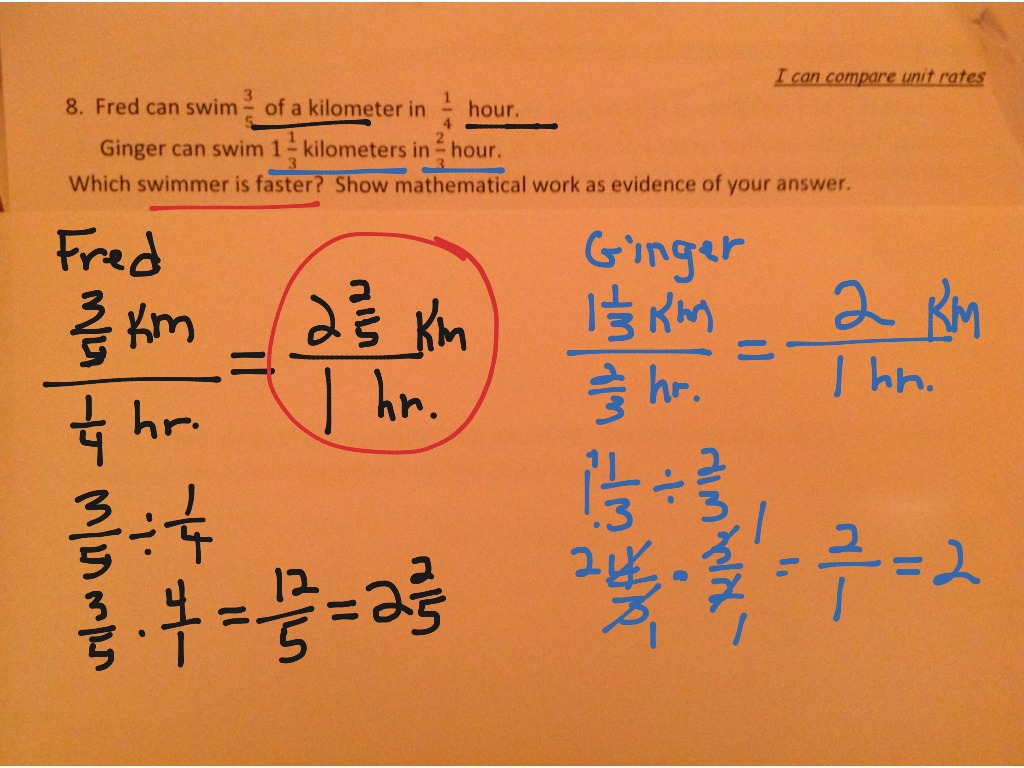 I can compare unit rates
8. Fred can swim 3/5 of a kilometer in 1/4 hour.
Ginger can swim 1 1/3 kilometers in 2/3 hour.
Which swimmer is faster? Show mathematical work as evidence of your answer.
Fred
3/5 Km / 1/4 hr. = 2 2/5 Km / 1 hr.
3/5 ÷ 1/4
3/5 · 4/1 = 12/5 = 2 2/5
Ginger
1 1/3 Km / 2/3 hr. = 2 Km / 1 hr.
1 + 1/3 ÷ 2/3
2 4/3 1 · 3/2 1 1 = 2/1 = 2